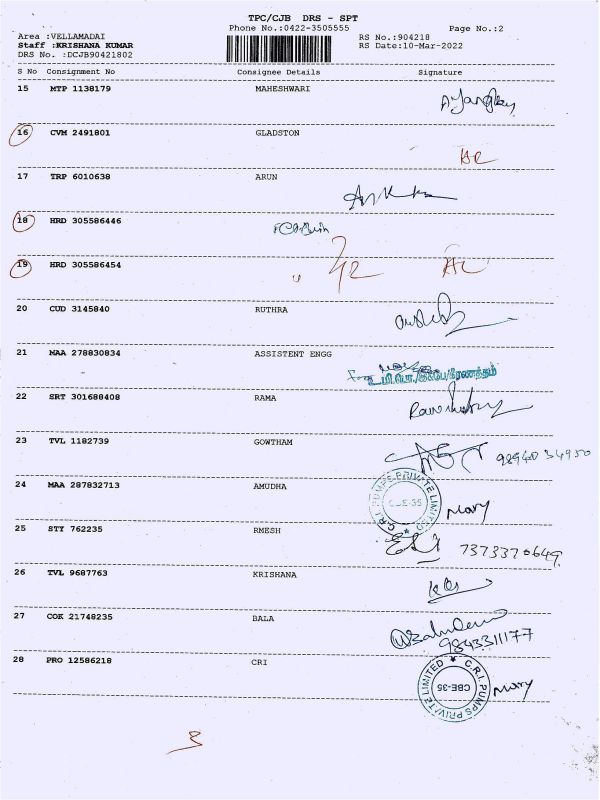 TPC/CJB DRS - SPT
Phone No.:0422-3505555 Page No.:2
Area :VELLAMADAI RS No.:904218
Staff :KRISHANA KUMAR RS Date:10-Mar-2022
DRS No. :DCJB90421802
S No Consignment No Consignee Details Signature
15 MTP 1138179 MAHESHWARI
16 CVM 2491801 GLADSTON
17 TRP 6010638 ARUN
18 HRD 305586446
19 HRD 305586454
20 CUD 3145840 RUTHRA
21 MAA 278830834 ASSISTENT ENGG
22 SRT 301688408 RAMA
23 TVL 1182739 GOWTHAM
24 MAA 287832713 AMUDHA
C.R.I. PUMPS PRIVATE LIMITED
CBE-35
Mary
25 STY 762235 RMESH
7373370649
26 TVL 9687763 KRISHANA
27 COK 21748235 BALA
9843311177
28 PRO 12586218 CRI
C.R.I. PUMPS PRIVATE LIMITED
CBE-35
Mary
3